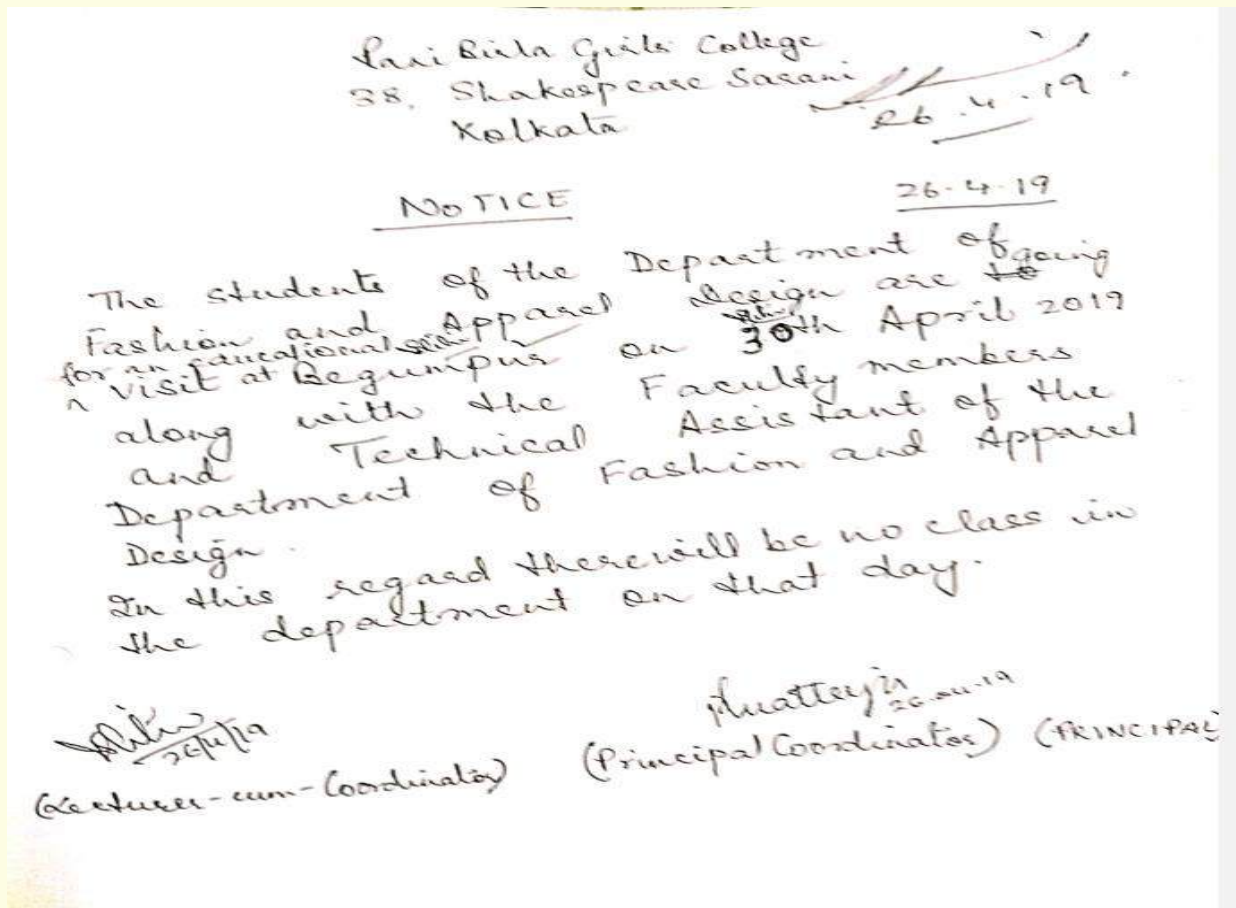 Rani Birla Girls' College
38, Shakespeare Sarani
Kolkata
26.4.19.
NOTICE
26.4.19
The students of the Department of
Fashion and Apparel Design are going
for an Educational
visit at Begumpur on 30th April 2019
along with the Faculty members
and Technical Assistant of the
Department of Fashion and Apparel
Design.
In this regard there will be no class in
the department on that day.
26/4/19
26.04.19
(Lecturer-cum-Coordinator) (Principal Coordinator) (PRINCIPAL)